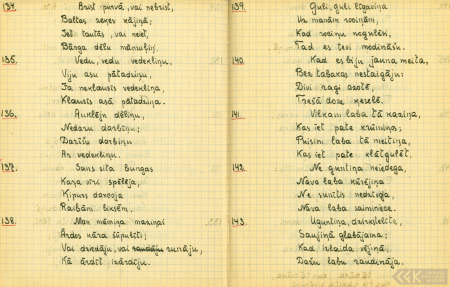 134.
Brist purvā, vai nebrist,
Baltas zeķes kājiņā;
Iet tautās, vai neiet,
Bārga dēlu māmuliņa.
135.
Vedu, vedu vedekliņu,
Viju asu pātadziņu,
Ja neklausīs vedekliņa,
Klausīs asā pātadziņa.
136.
Auklēju dēliņu,
Nedaru darbiņu;
Darīšu darbiņu
Ar vedekliņu.
137.
Suns sita bungas
Kaza vir' spēlēja,
Kipurs dancoja
Raibām biksēm.
138.
Man māmiņa maziņai
Ārdos kāra šūpulīti;
Vai dziedāju, vai runāju,
Kā ārdīt izārdīju.
139.
Guli, guli līgaviņa
Uz manām rociņām,
Kad rociņu nogulēsi,
Tad es tevi modināšu.
140.
Kad es biju jauna meita,
Bez tabakas nestaigāju:
Divi ragi azotē,
Trešā doze ķeselē.
141.
Vilkam laba tā kaziņa,
Kas iet pate krūmiņā;
Puisim laba tā meitiņa,
Kas iet pate klātgulēt.
142.
Ne guntiņa neiedega,
Nava laba kūrējiņa;
Ne runītis nedzīvoja,
Nava laba saiminiece.
143.
Uguntiņa, dzirkstelīte,
Saujiņā glabājama;
Kad izlaida vējiņā,
Dažu labu raudināja.